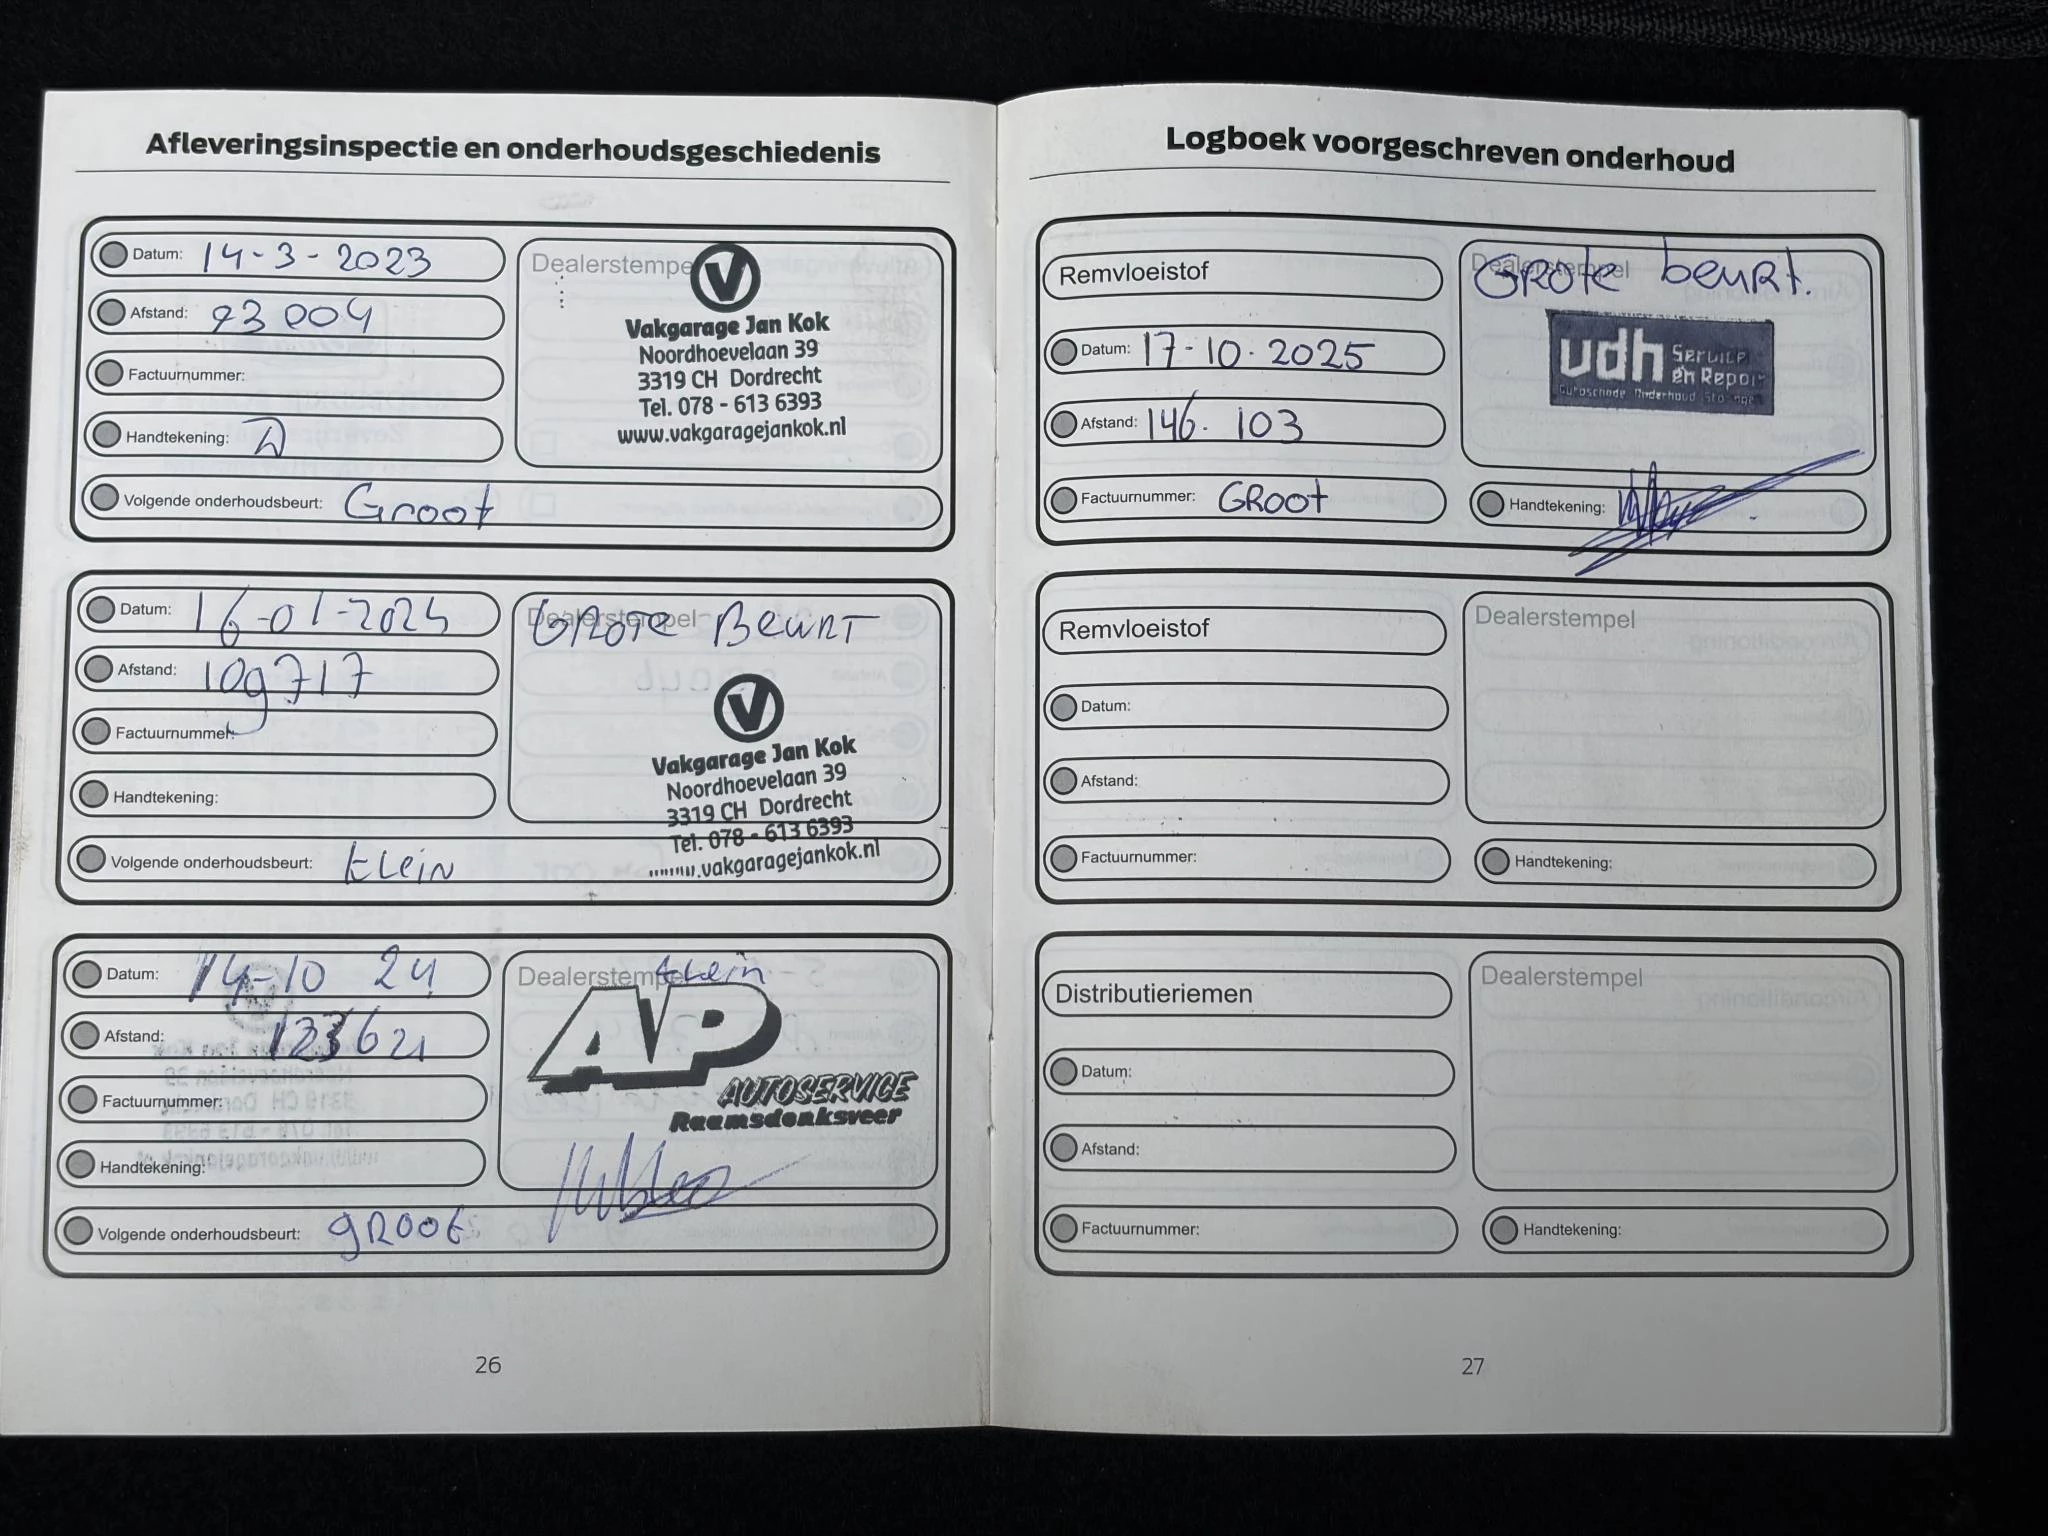 Afleveringsinspectie en onderhoudsgeschiedenis
Datum: 14-3-2023
Afstand: 93004
Factuurnummer:
Handtekening:
Volgende onderhoudsbeurt: Groot
Dealerstempel
Vakgarage Jan Kok
Noordhoevelaan 39
3319 CH Dordrecht
Tel. 078 - 613 6393
www.vakgaragejankok.nl
Datum: 16-01-2024
Afstand: 109717
Factuurnummer:
Handtekening:
Volgende onderhoudsbeurt: klein
Dealerstempel
GROTE BEURT
Vakgarage Jan Kok
Noordhoevelaan 39
3319 CH Dordrecht
Tel. 078 - 613 6393
www.vakgaragejankok.nl
Datum: 14-10 24
Afstand: 123621
Factuurnummer:
Handtekening:
Volgende onderhoudsbeurt: gROOt
Dealerstempel klein
AP
AUTOSERVICE
Raamsdonksveer
26
Logboek voorgeschreven onderhoud
Remvloeistof
Datum: 17-10-2025
Afstand: 146.103
Factuurnummer: GROOt
Dealerstempel
GROte beuRt.
vdh Service
en Repar
Autoschade Onderhoud
Handtekening:
Remvloeistof
Datum:
Afstand:
Factuurnummer:
Dealerstempel
Handtekening:
Distributieriemen
Datum:
Afstand:
Factuurnummer:
Dealerstempel
Handtekening:
27